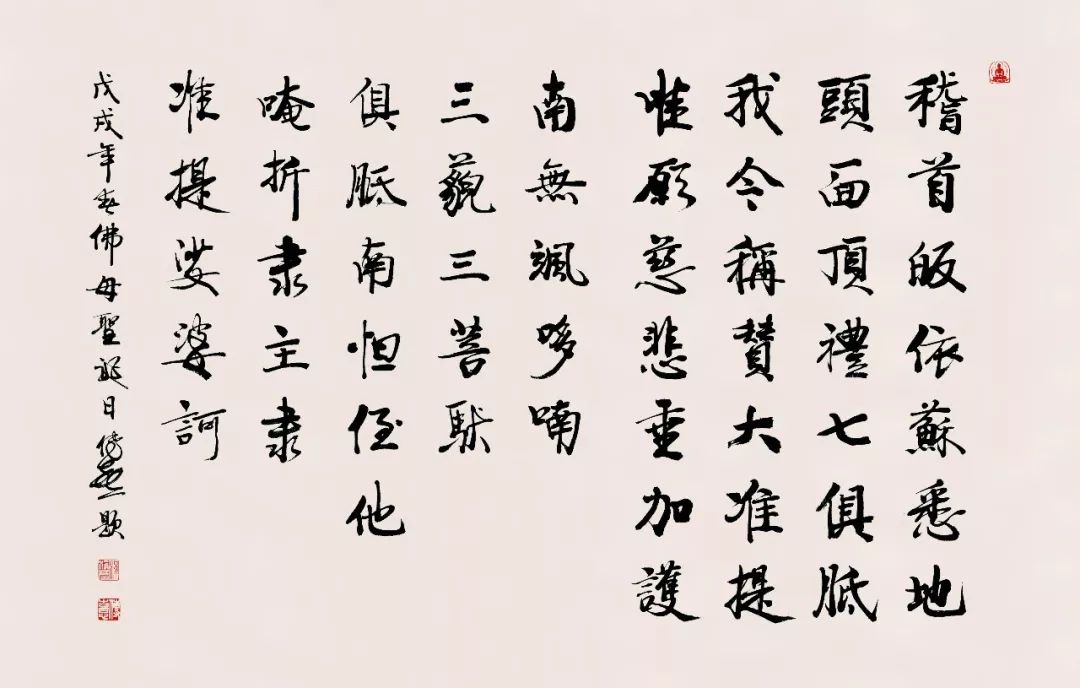 稽首皈依蘇悉地
頭面頂禮七俱胝
我今稱賛大准提
唯願慈悲垂加護
南無颯哆喃
三藐三菩馱
俱胝南怛侄他
唵折隶主隶
准提娑婆訶
戊戌年春佛母聖誕日題